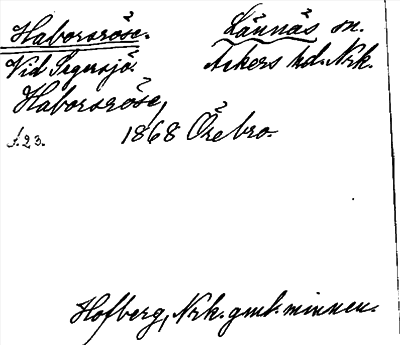 Haborsröse. Lännäs sn.
Vid Segersjö. Askers hd. Nrk.
Haborsröse,
s. 23. 1868 Örebro.
Hofberg, Nrk. gml. minnen.